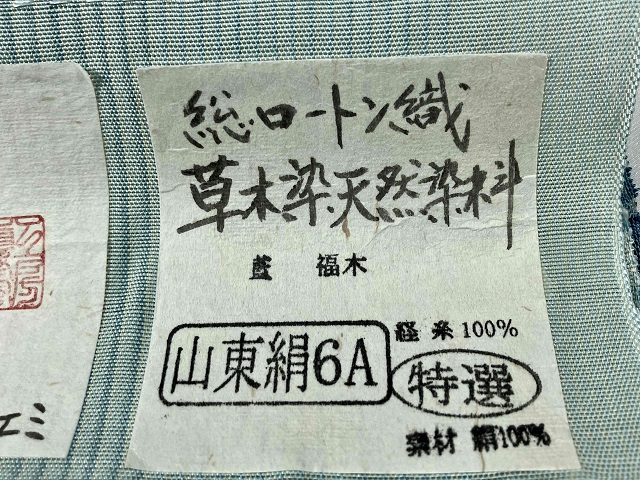 総ロートン織
草木染天然染料
福木
山東絹6A
経糸100%
特選
素材 絹100%
エミ